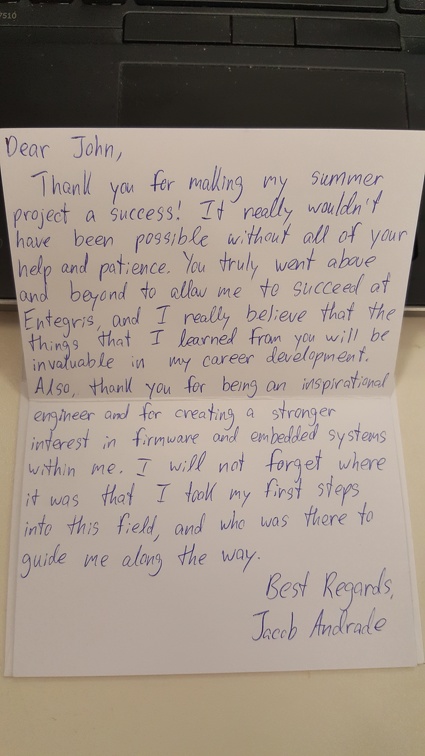 7510
Dear John,
Thank you for making my summer
project a success! It really wouldn't
have been possible without all of your
help and patience. You truly went above
and beyond to allow me to succeed at
Entegris, and I really believe that the
things that I learned from you will be
invaluable in my career development.
Also, thank you for being an inspirational
engineer and for creating a stronger
interest in firmware and embedded systems
within me. I will not forget where
it was that I took my first steps
into this field, and who was there to
guide me along the way.
Best Regards,
Jacob Andrade